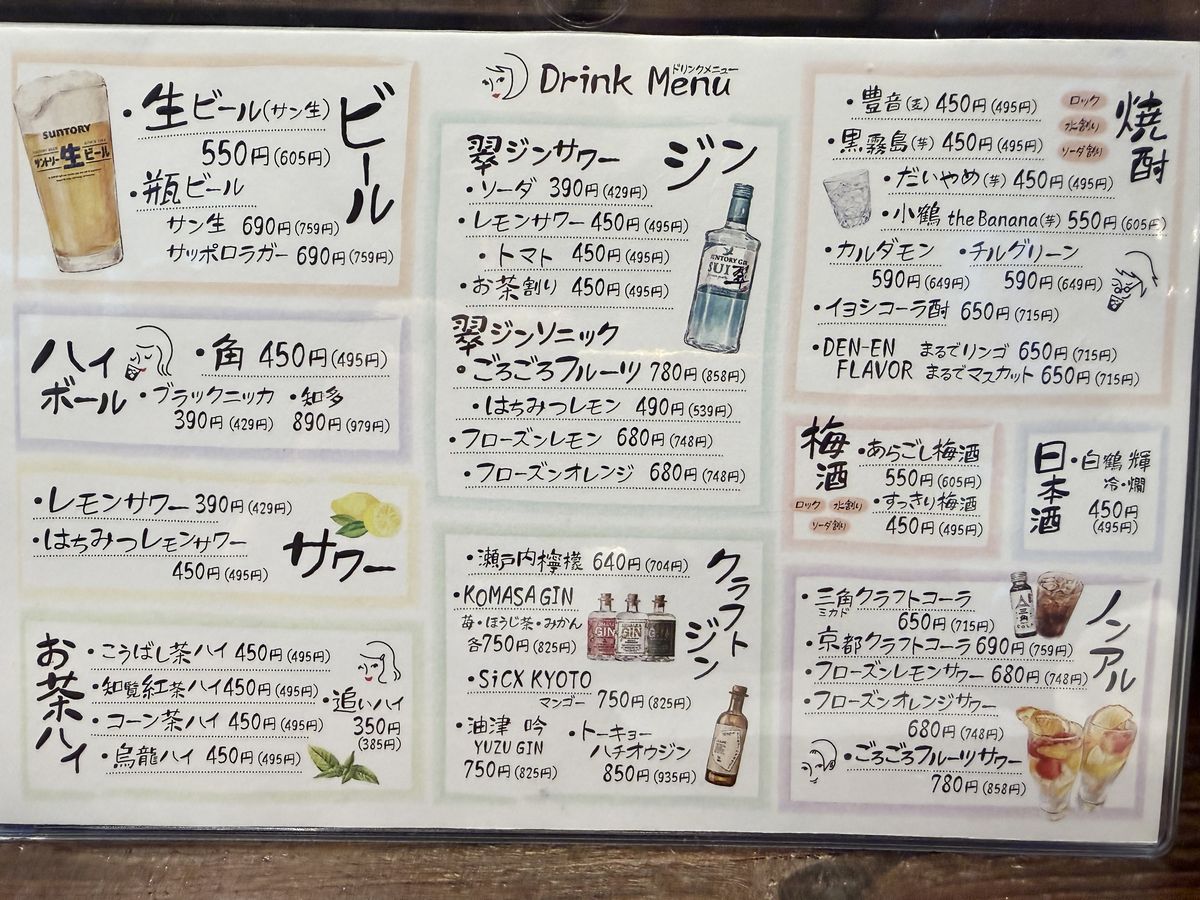 Drink Menu
ドリンクメニュー
ビール
・生ビール(サン生)
550円(605円)
・瓶ビール
サン生 690円(759円)
サッポロラガー 690円(759円)
SUNTORY
サントリー生ビール
ハイボール
・角 450円(495円)
・ブラックニッカ ・知多
390円(429円) 890円(979円)
・レモンサワー 390円(429円)
・はちみつレモンサワー
450円(495円)
サワー
お茶ハイ
・こうばし茶ハイ 450円(495円)
・知覧紅茶ハイ 450円(495円)
・コーン茶ハイ 450円(495円)
・烏龍ハイ 450円(495円)
・追いハイ
350円
(385円)
ジン
翠ジンサワー
・ソーダ 390円(429円)
・レモンサワー 450円(495円)
・トマト 450円(495円)
・お茶割り 450円(495円)
翠ジンソニック
・ごろごろフルーツ 780円(858円)
・はちみつレモン 490円(539円)
・フローズンレモン 680円(748円)
・フローズンオレンジ 680円(748円)
SUNTORY GIN
SUI 翠
クラフトジン
・瀬戸内檸檬 640円(704円)
・KOMASA GIN
苺・ほうじ茶・みかん
各750円(825円)
GIN GIN GIN
・SiCX KYOTO
マンゴー 750円(825円)
・油津 吟 ・トーキョー
YUZU GIN ハチオウジン
750円(825円) 850円(935円)
焼酎
・豊音(麦) 450円(495円)
・黒霧島(芋) 450円(495円)
ロック
水割り
ソーダ割り
・だいやめ(芋) 450円(495円)
・小鶴 the Banana(芋) 550円(605円)
・カルダモン ・チルグリーン
590円(649円) 590円(649円)
・イヨシコーラ酎 650円(715円)
・DEN-EN まるでリンゴ 650円(715円)
FLAVOR まるでマスカット 650円(715円)
梅酒
・あらごし梅酒
550円(605円)
・すっきり梅酒
450円(495円)
ロック 水割り
ソーダ割り
日本酒
・白鶴 輝
冷・燗
450円
(495円)
ノンアル
・三角クラフトコーラ
ミカド
650円(715円)
・京都クラフトコーラ 690円(759円)
・フローズンレモンサワー 680円(748円)
・フローズンオレンジサワー
680円(748円)
・ごろごろフルーツサワー
780円(858円)